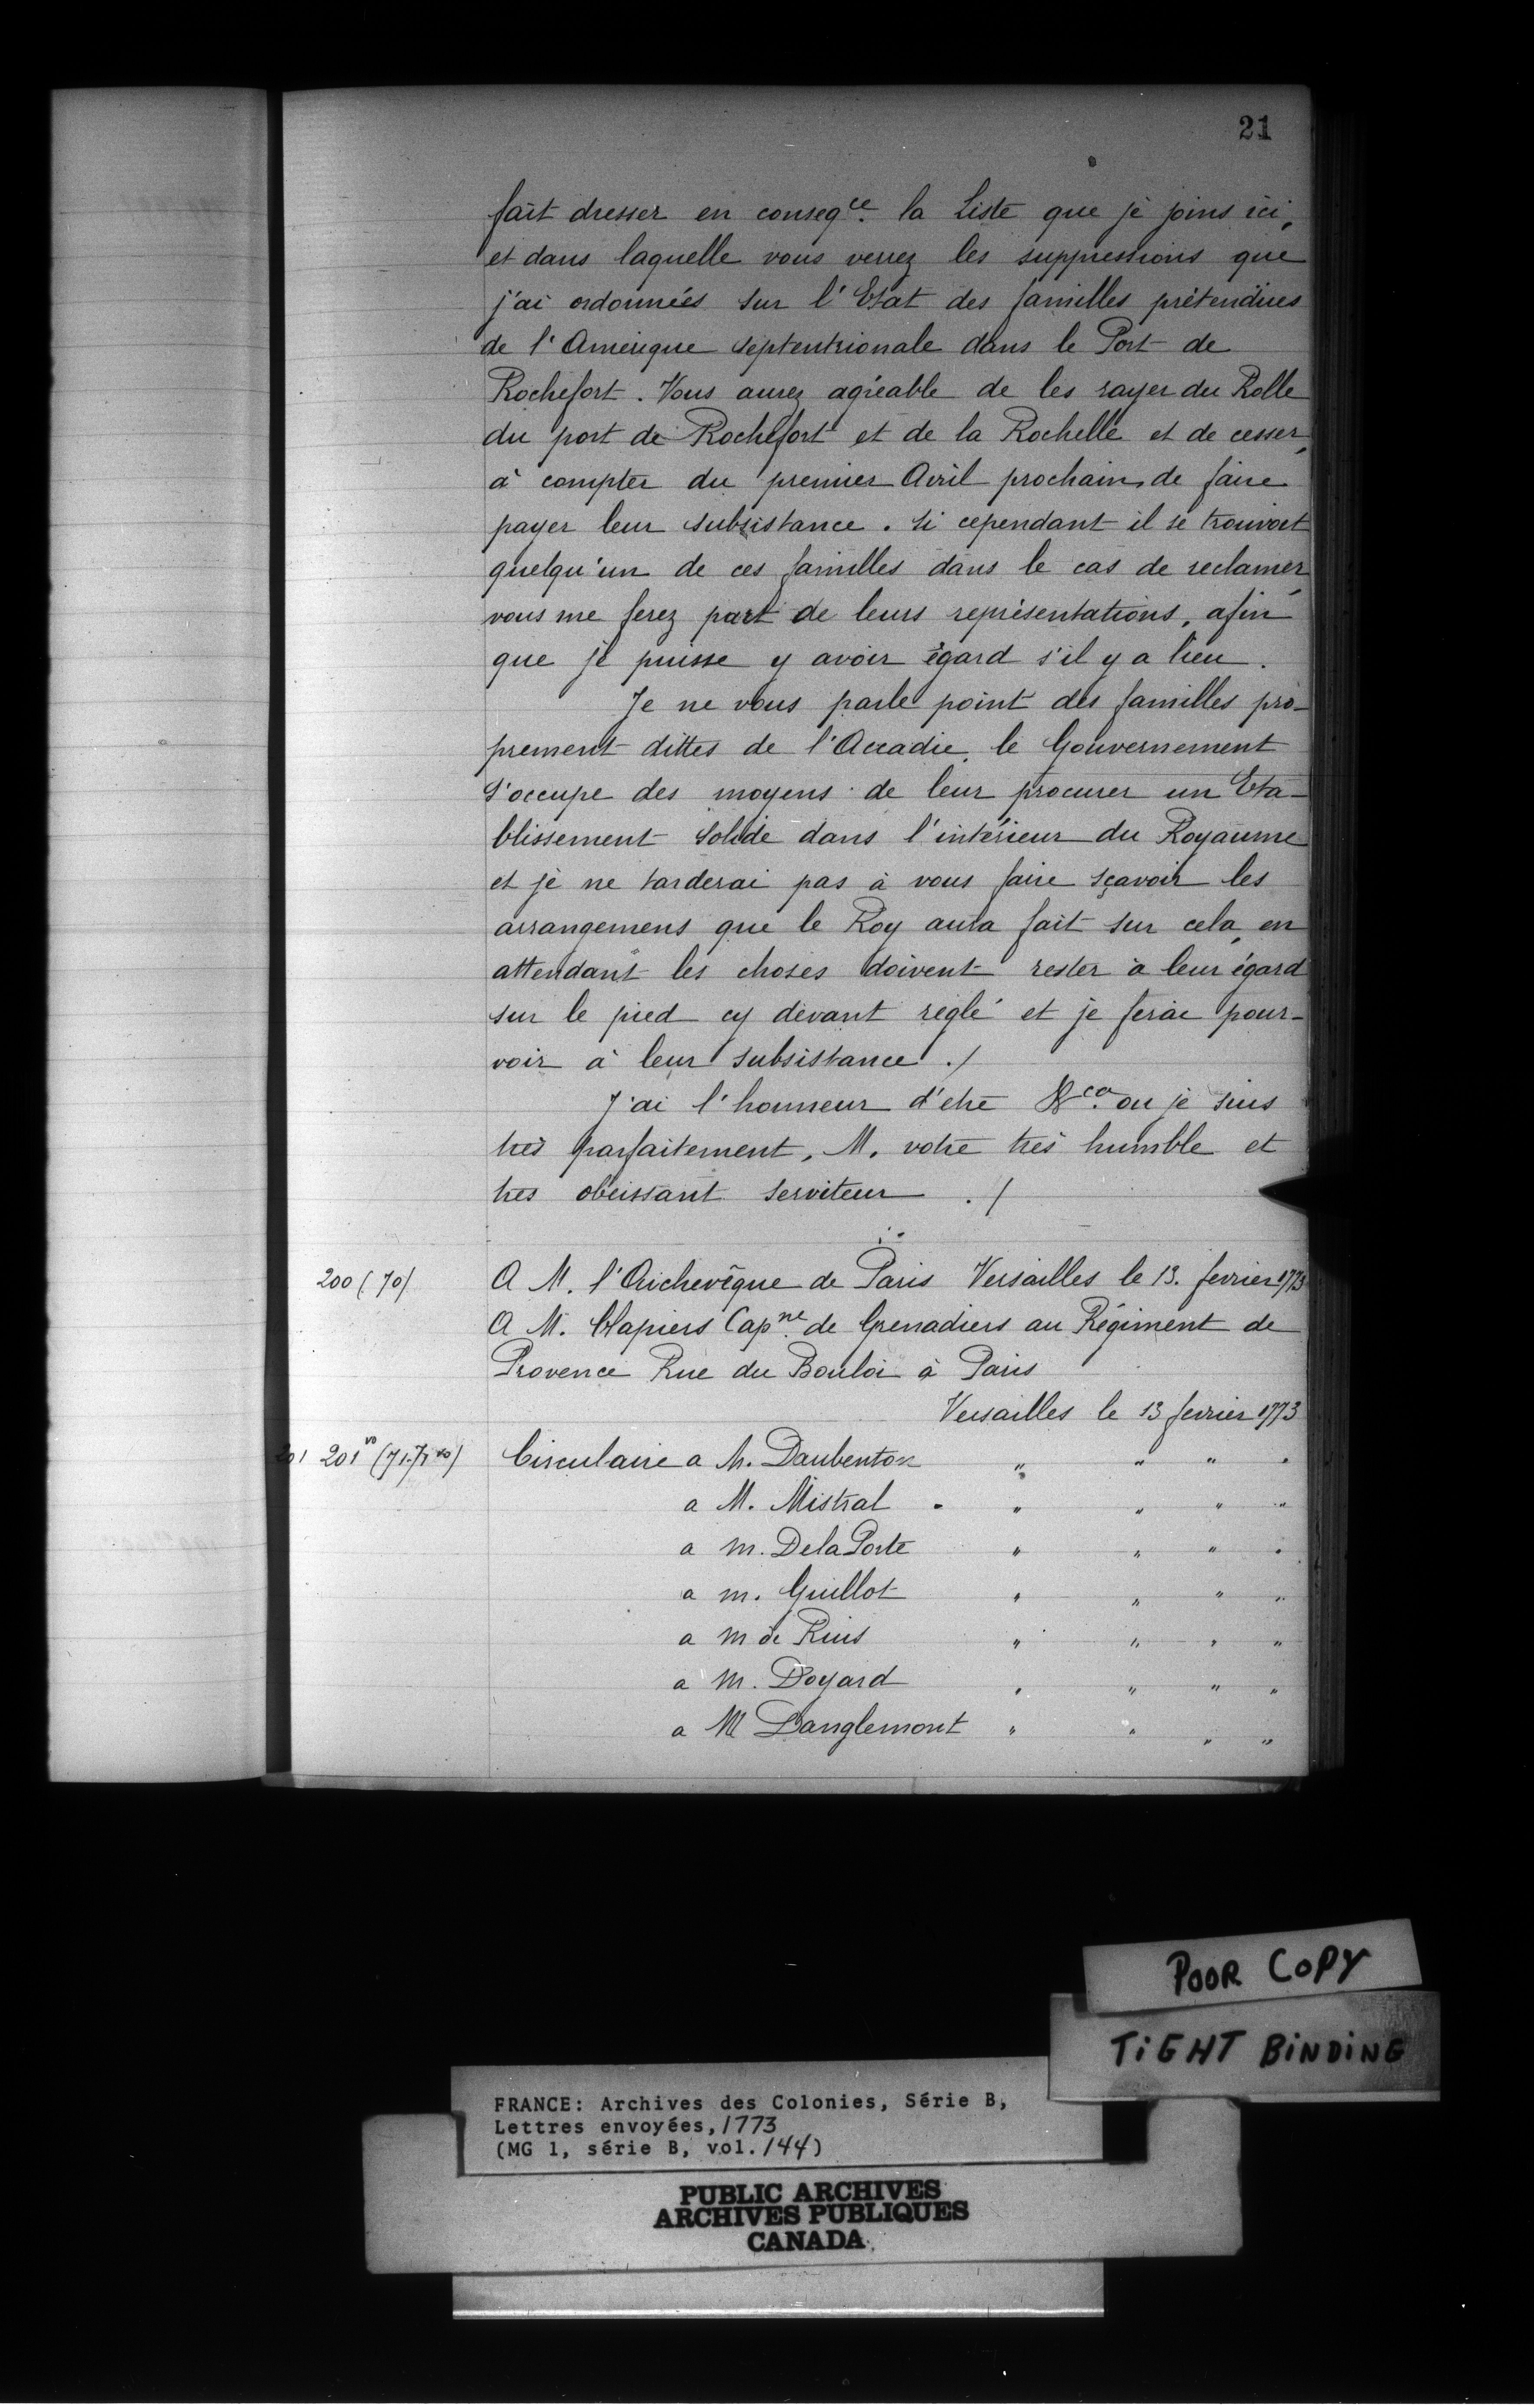 21
fait dresser en conseq.ce la Liste que je joins ici,
et dans laquelle vous verrez les suppressions que
j'ai ordonnées sur l'Etat des familles prétendües
de l'Amérique septentrionale dans le Port de
Rochefort. Vous aurez agréable de les rayer du Rolle
du port de Rochefort et de la Rochelle et de cesser,
à compter du premier Avril prochain, de faire
payer leur subsistance. Si cependant il se trouvoit
quelqu'un de ces familles dans le cas de reclamer,
vous me ferez part de leurs représentations, afin
que je puisse y avoir égard s'il y a lieu.
Je ne vous parle point des familles pro-
prement dittes de l'Accadie, le Gouvernement
s'occupe des moyens de leur procurer un Eta-
blissement solide dans l'intérieur du Royaume
et je ne tarderai pas à vous faire sçavoir les
arrangemens que le Roy aura fait sur cela, en
attendant les choses doivent rester à leur égard
sur le pied cy devant réglé et je ferai pour-
voir à leur subsistance ./
J'ai l'honneur d'etre &ca. ou je suis
très parfaitement, M. votre très humble et
tres obéissant serviteur ./
200 (70) A M. l'Archevêque de Paris Versailles le 13. fevrier 1773
A M. Clapiers Cap.ne de Grenadiers au Régiment de
Provence Rue du Bouloi à Paris
Versailles le 13 fevrier 1773
201 201vo (71.71vo) Circulaire a M. Daubenton " " " "
a M. Mistral " " " "
a m. De la Porte " " " "
a m. Guillot " " " "
a m de Ruis " " " "
a m. Doyard " " " "
a M Danglemont " " " "
POOR COPY
TIGHT BINDING
FRANCE: Archives des Colonies, Série B,
Lettres envoyées, 1773
(MG 1, série B, vol. 144)
PUBLIC ARCHIVES
ARCHIVES PUBLIQUES
CANADA